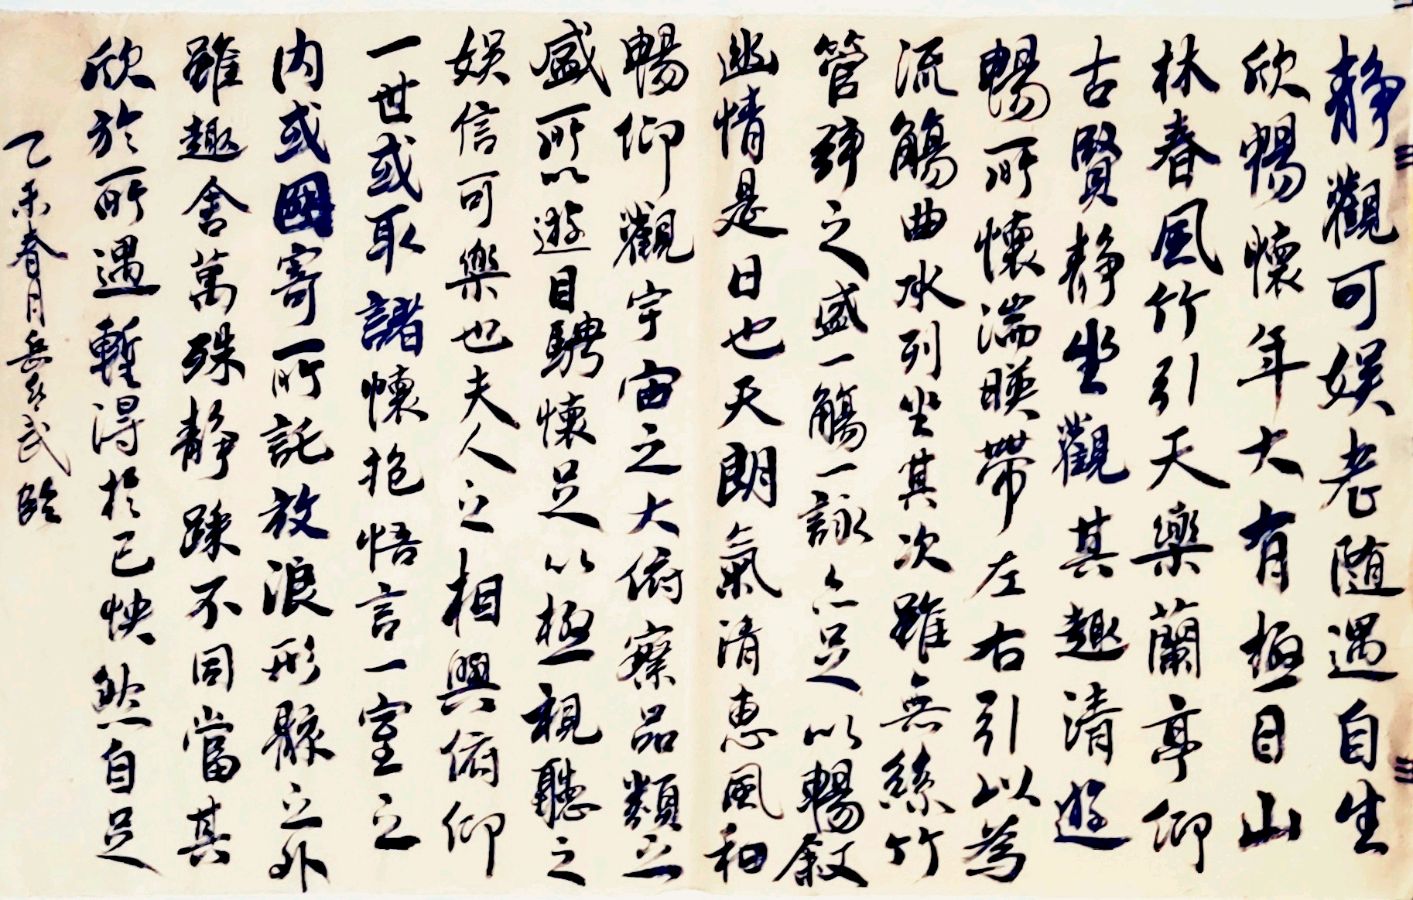 静觀可娱老随遇自生
欣暢懷年大有極目山
林春風竹引天樂蘭亭仰
古賢静坐觀其趣清遊
暢所懷湍暎帶左右引以為
流觴曲水列坐其次雖無絲竹
管弦之盛一觴一詠亦足以暢叙
幽情是日也天朗氣清惠風和
暢仰觀宇宙之大俯察品類之
盛所以遊目騁懷足以極視聽之
娱信可樂也夫人之相與俯仰
一世或取諸懷抱悟言一室之
内或因寄所託放浪形骸之外
雖趣舍萬殊静躁不同當其
欣於所遇暫得於己怏然自足
乙未春月岳武臨